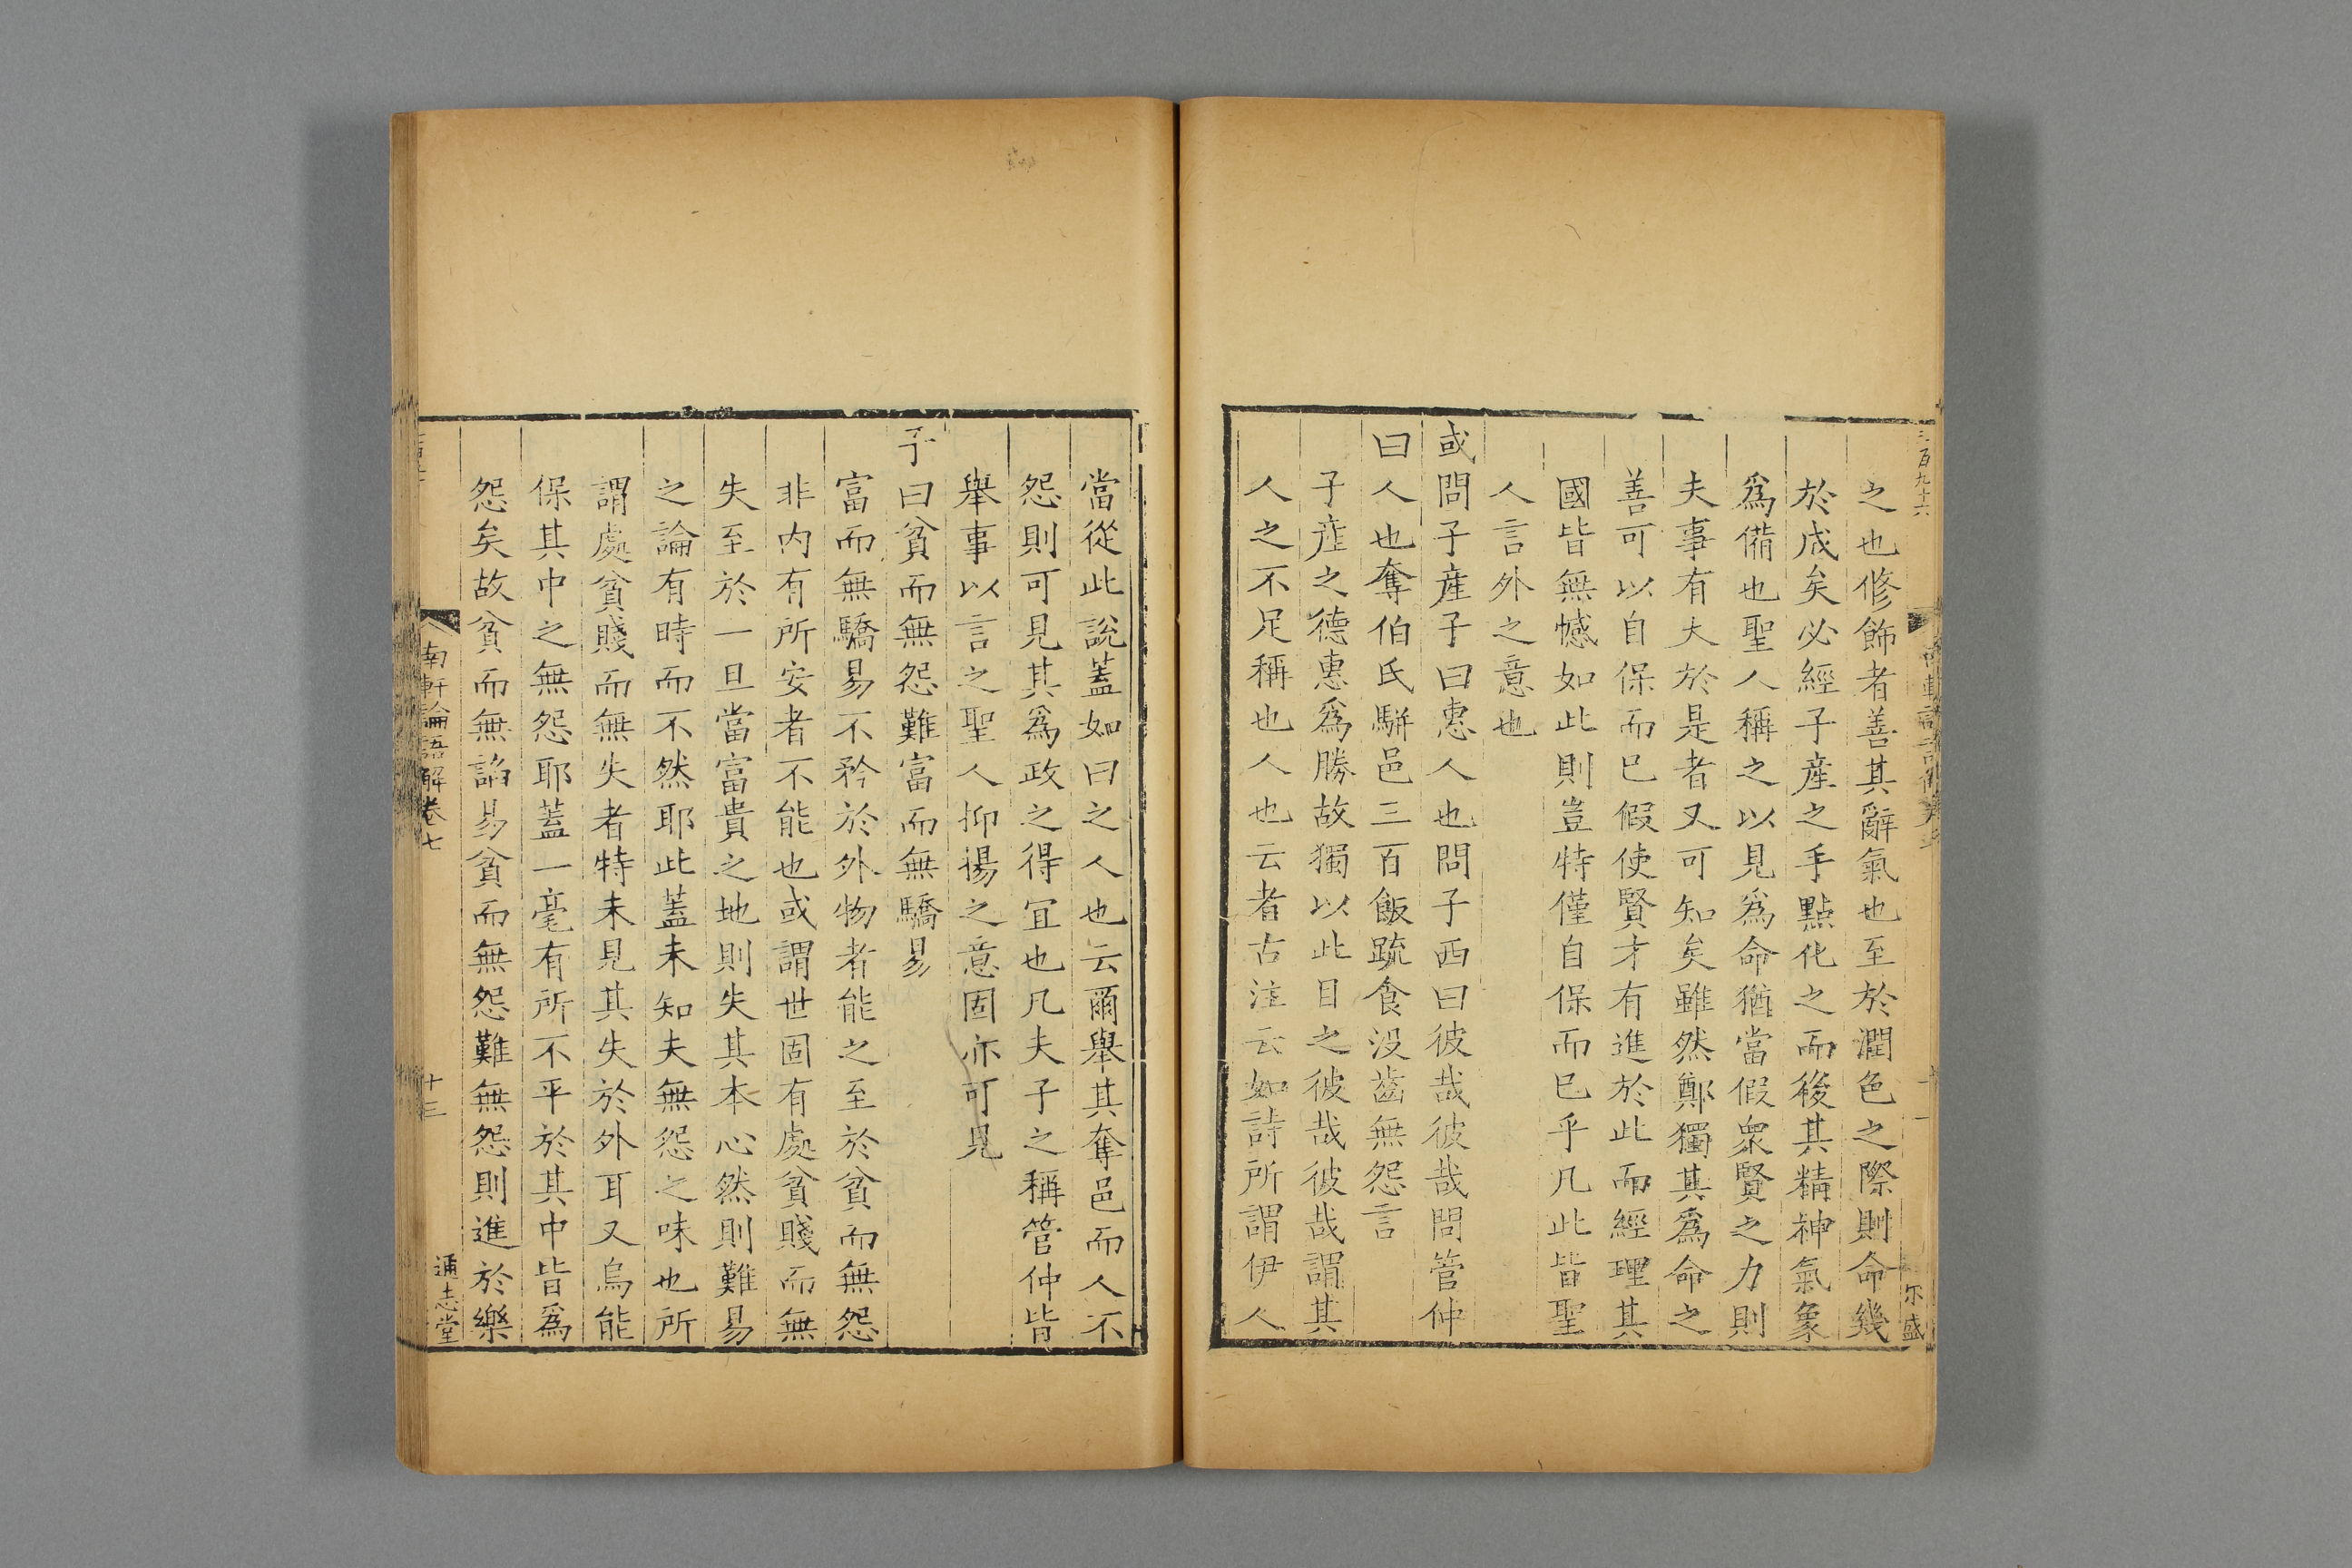 三百九十六
之也修飾者善其辭氣也至於潤色之際則命幾
於成矣必經子產之手點化之而後其精神氣象
爲備也聖人稱之以見爲命猶當假衆賢之力則
夫事有大於是者又可知矣雖然鄭獨其爲命之
善可以自保而已假使賢才有進於此而經理其
國皆無憾如此則豈特僅自保而已乎凡此皆聖
人言外之意也
或問子產子曰惠人也問子西曰彼哉彼哉問管仲
曰人也奪伯氏駢邑三百飯䟽食没齒無怨言
子產之德惠爲勝故獨以此目之彼哉彼哉謂其
人之不足稱也人也云者古注云如詩所謂伊人
當從此說蓋如曰之人也云爾舉其奪邑而人不
怨則可見其爲政之得冝也凡夫子之稱管仲皆
舉事以言之聖人抑揚之意固亦可見
子曰貧而無怨難富而無驕易
富而無驕易不矜於外物者能之至於貧而無怨
非内有所安者不能也或謂世固有處貧賤而無
失至於一旦當富貴之地則失其本心然則難易
之論有時而不然耶此蓋未知夫無怨之味也所
謂處貧賤而無失者特未見其失於外耳又烏能
保其中之無怨耶蓋一毫有所不平於其中皆爲
怨矣故貧而無諂易貧而無怨難無怨則進於樂
南軒論語解卷七
十三
通志堂